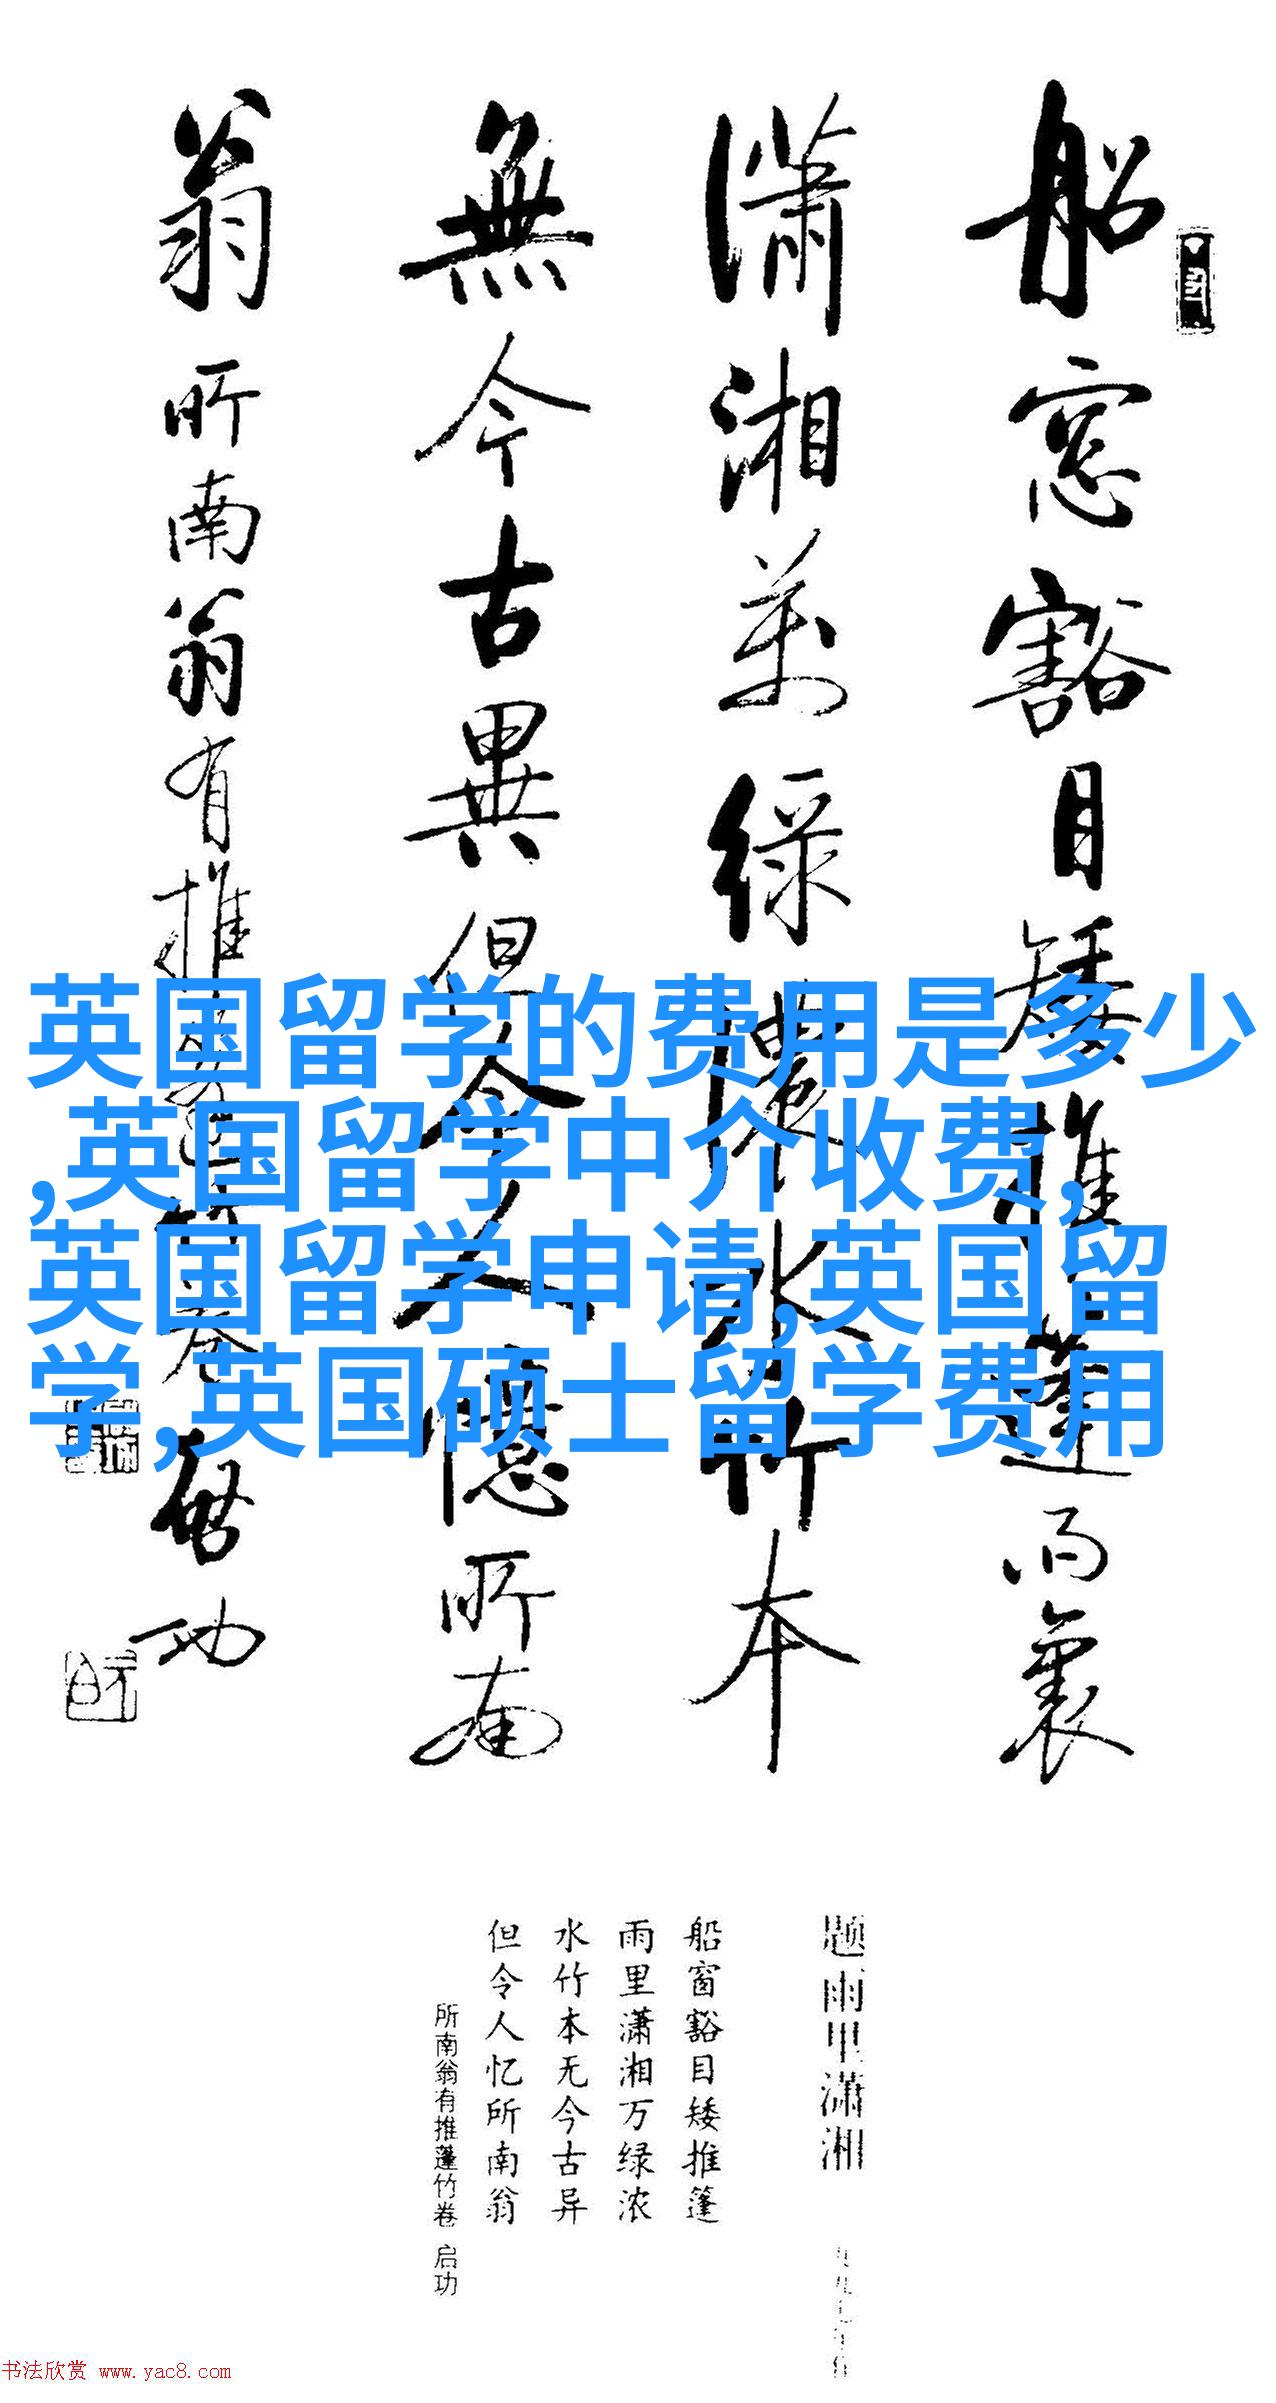 船窓豁目矮推蓬雨裏
潇湘萬緑濃水竹本
無今古異但令人憶所南
翁
所南翁有推蓬竹卷 启功
英国留学的费用是多少
,英国留学中介收费,
英国留学申请,英国留
学,英国硕士留学费用
题雨里潇湘
船窗豁目矮推篷
雨里潇湘万绿浓
水竹本无今古异
但令人忆所南翁
所南翁有推蓬竹卷 启功
书法欣赏 www.yac8.com